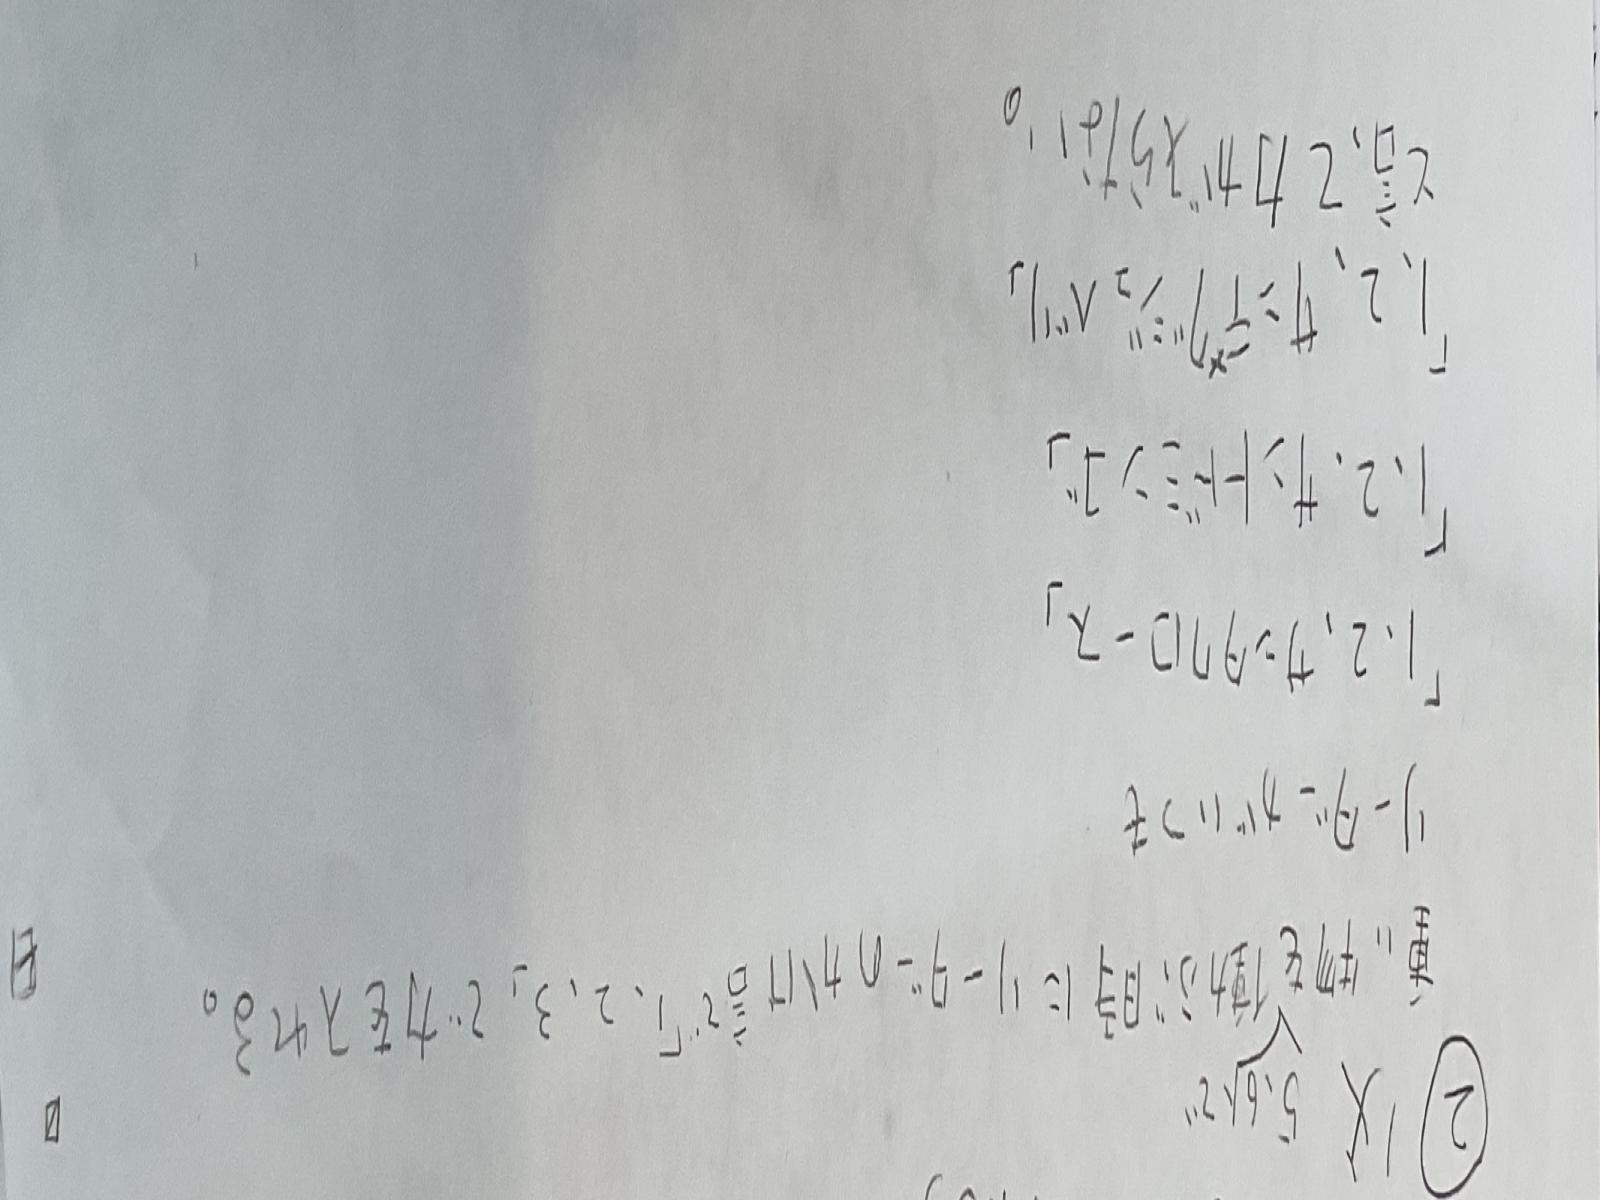 ②
5、6人で
重い物を働ぶ時にリーダーのかけ言で「1、2、3」で力を入れる。
リーダーがいつも
「1、2、サンタクロース」
「1、2、サントドミンゴ」
「1、2、サンテグジュベリ」
と言って力が入らない。